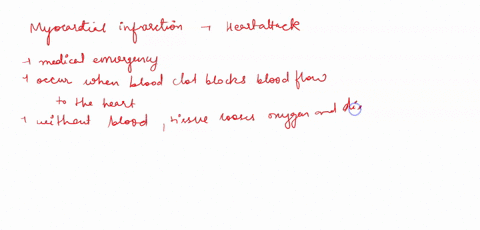 Myocardial infarction → Heartattack
→ medical emergency
→ occur when blood clot blocks blood flow
to the heart
→ without blood, tissue looses oxygen and di